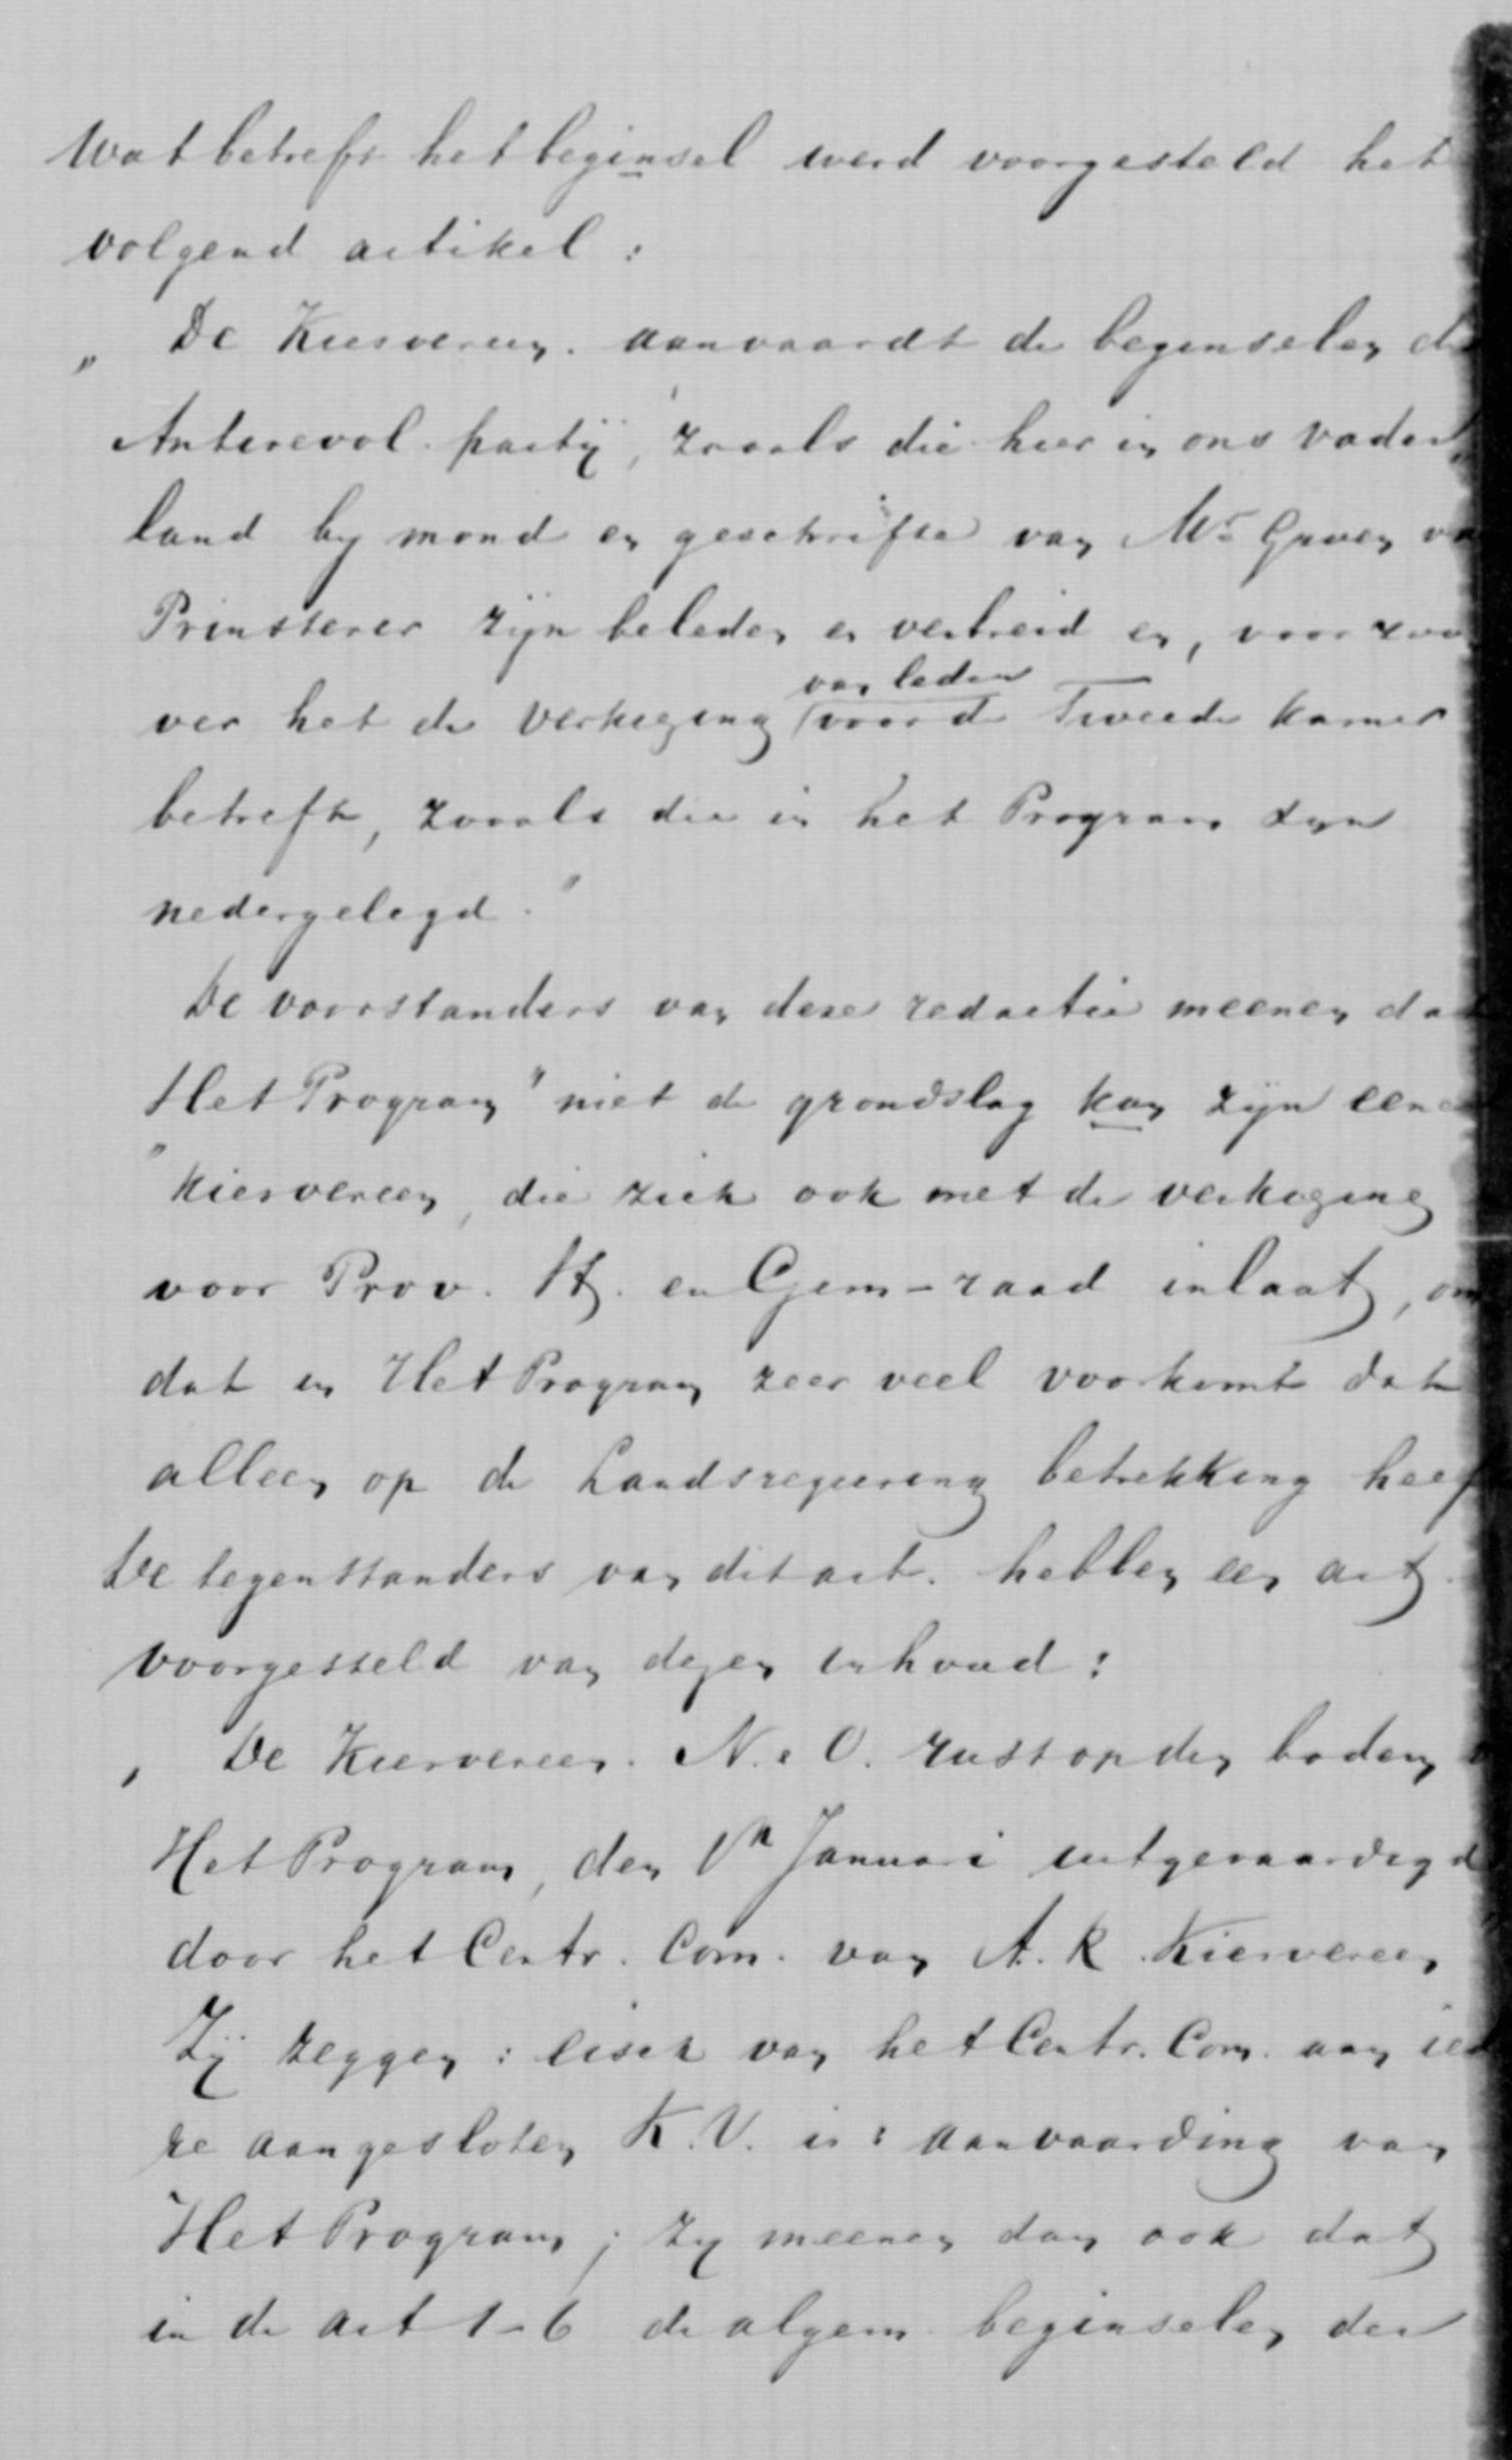 Wat betreft het beginsel werd voorgesteld het
volgend artikel :
„ De Kiesvereen. aanvaardt de beginselen d
Antirevol. partij, zooals die hier in ons vader
land by mond en geschrifte van Mr Groen v
Prinsterer zijn beleden en verbreid en, voor zoo
van leden
ver het de verkiezing voor de Tweede Kamer
betreft, zooals die in het Program zijn
nedergelegd."
De voorstanders van deze redactie meenen da
Het Program" niet de grondslag kan zijn eene
"Kiesvereen, die zich ook met de verkiezing
voor Prov. St. en Gem-raad inlaat, om
dat in Het Program zeer veel voorkomt dat
alleen op de Landsregeering betrekking heef
De tegenstanders van dit art. hebben een art.
voorgesteld van dezen inhoud :
„ De Kiesvereen. N. e O. rust op den bodem
Het Program, den 1n Januari uitgevaardigd
door het Centr. Com. van A. R. Kiesvereen"
Zij zeggen : eisch van het Centr. Com. aan ied
re aangesloten K.V. is : aanvaarding van
Het Program ; zy meenen dan ook dat
in de art 1-6 de algem. beginselen der